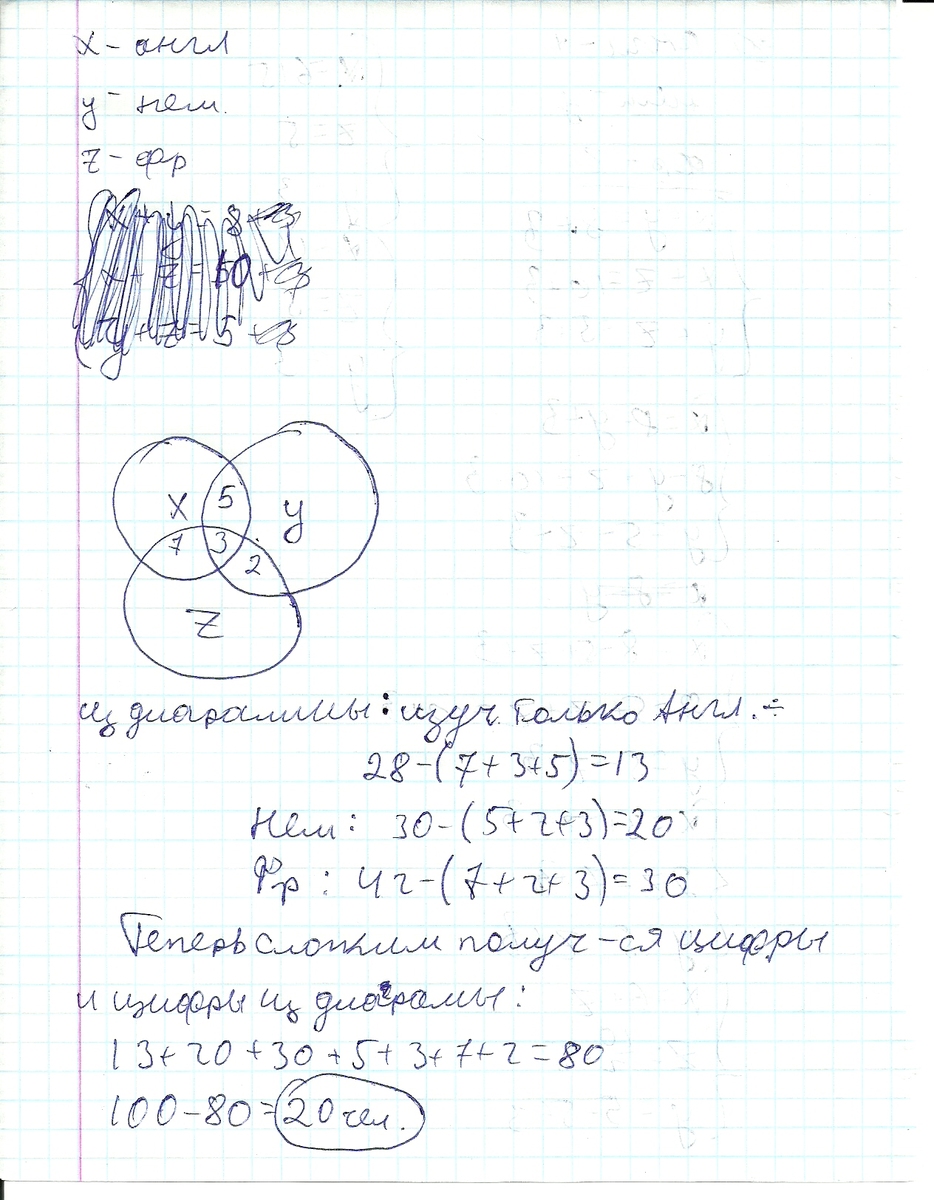 x - англ
y - нем.
z - фр
x + y = 8
x + z = 10
y + z = 5
x 5 y
7 3 2
z
из диараммы: изуч. только Англ. -
28-(7+3+5)=13
Нем: 30-(5+2+3)=20
Фр: 42-(7+2+3)=30
Теперь сложим получ-ся цифры
и цифры из диаграмы:
13+20+30+5+3+7+2=80
100-80=20 чел.